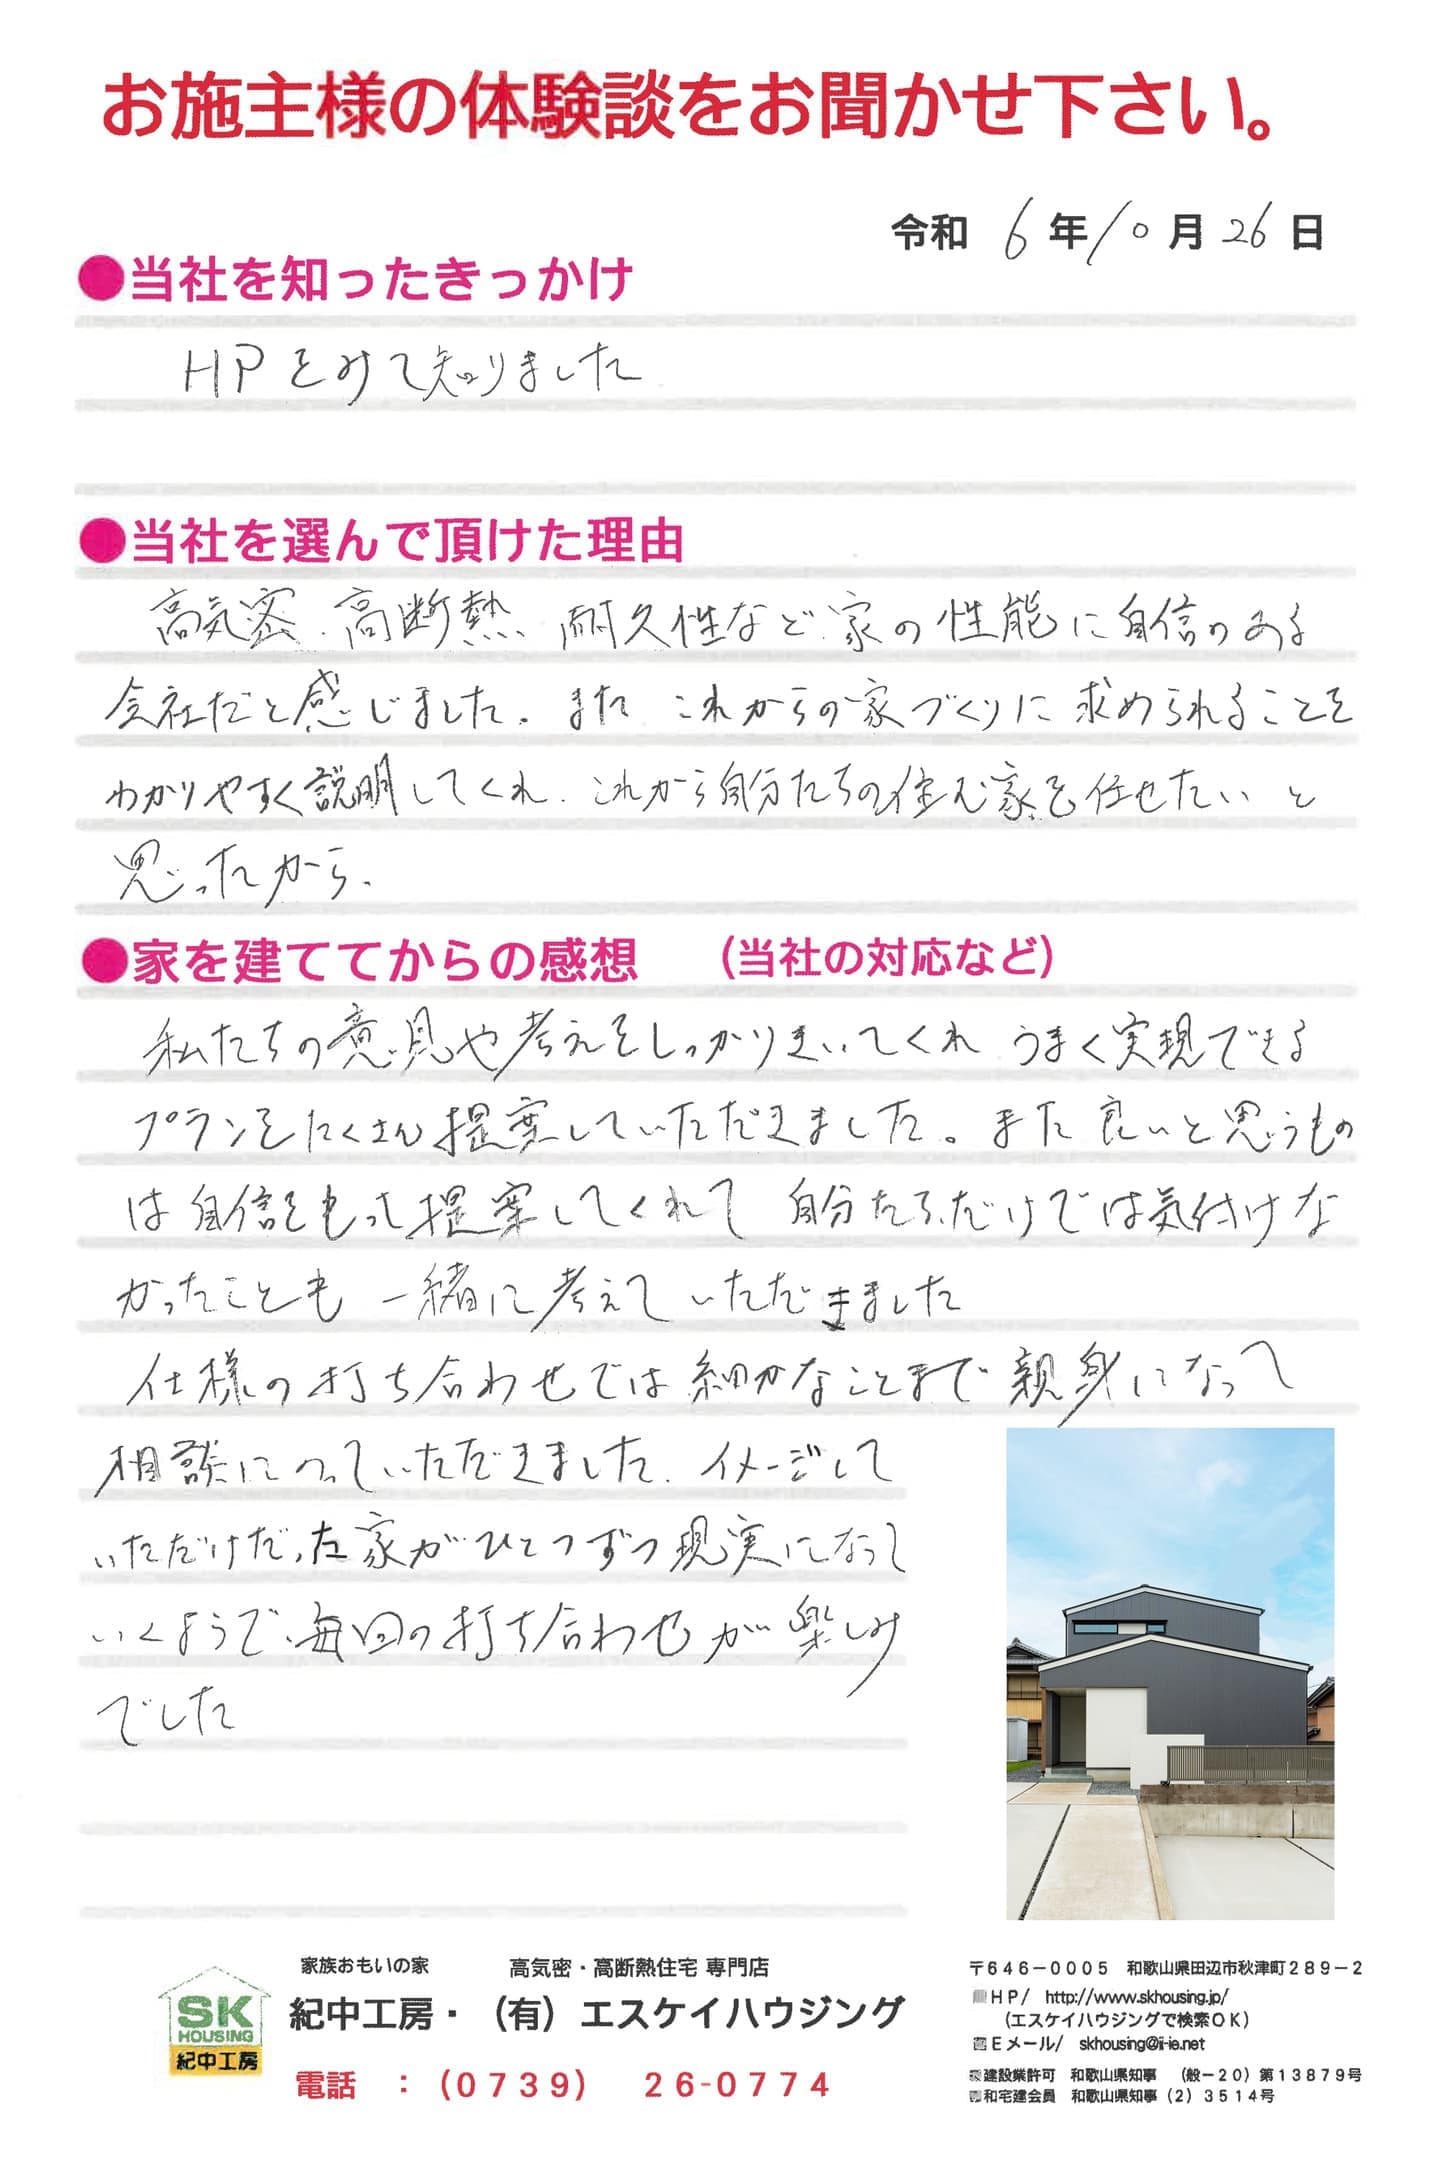 お施主様の体験談をお聞かせ下さい。
令和 6 年 10 月 26 日
●当社を知ったきっかけ
HPをみて知りました
●当社を選んで頂けた理由
高気密、高断熱、耐久性など家の性能に自信のある
会社だと感じました。また これからの家づくりに求められることを
わかりやすく説明してくれ、これから自分たちの住む家を任せたいと
思ったから、
●家を建ててからの感想 (当社の対応など)
私たちの意見や考えをしっかりきいてくれ うまく実現できる
プランをたくさん提案していただきました。また良いと思うもの
は自信をもって提案してくれて 自分たちだけでは気付けな
かったことも 一緒に考えていただきました
仕様の打ち合わせでは細かなことまで親身になって
相談にのっていただきました。イメージして
いただけだった家がひとつずつ現実になって
いくようで、毎回の打ち合わせが楽しみ
でした
家族おもいの家 高気密・高断熱住宅 専門店
紀中工房・(有)エスケイハウジング
電話 : (0739) 26-0774
SK
HOUSING
紀中工房
〒646-0005 和歌山県田辺市秋津町289-2
HP/ http://www.skhousing.jp/
(エスケイハウジングで検索OK)
Eメール/ skhousing@ii-ie.net
建設業許可 和歌山県知事 (般-20)第13879号
和宅建会員 和歌山県知事(2)3514号